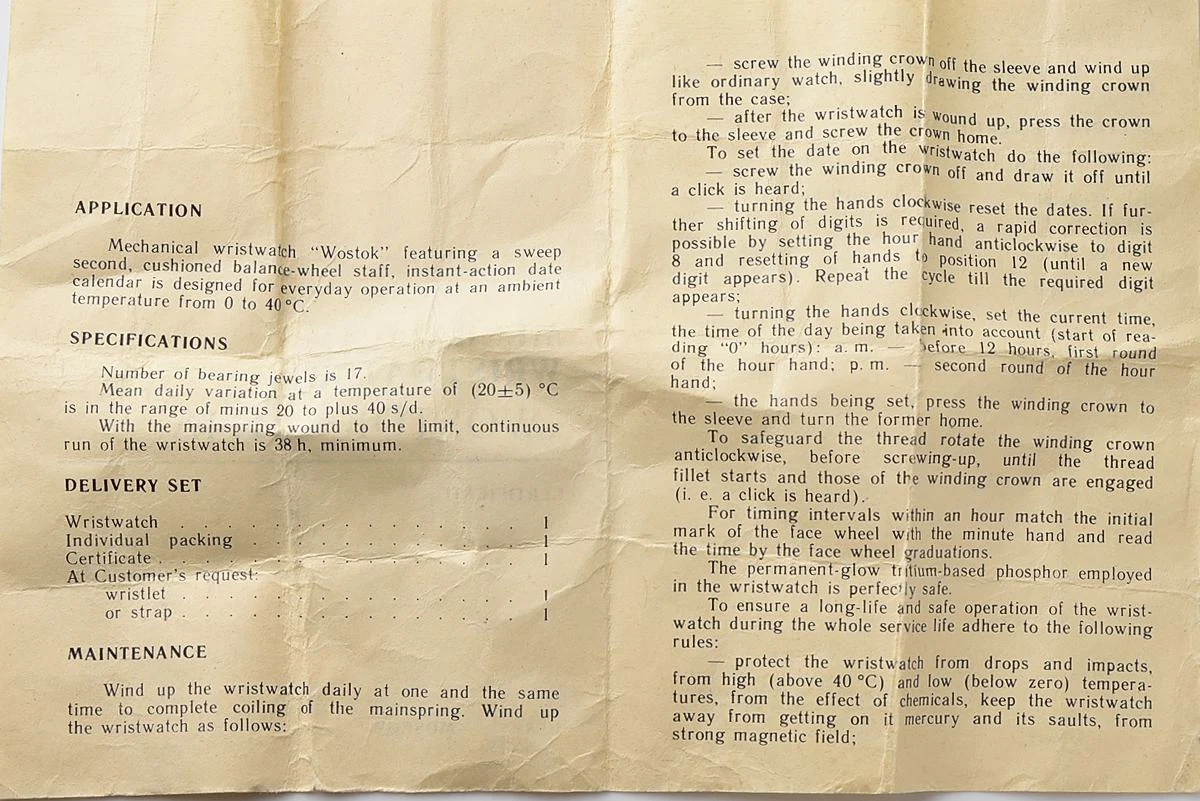 APPLICATION
Mechanical wristwatch “Wostok” featuring a sweep
second, cushioned balance-wheel staff, instant-action date
calendar is designed for everyday operation at an ambient
temperature from 0 to 40 °C.
SPECIFICATIONS
Number of bearing jewels is 17.
Mean daily variation at a temperature of (20±5) °C
is in the range of minus 20 to plus 40 s/d.
With the mainspring wound to the limit, continuous
run of the wristwatch is 38 h, minimum.
DELIVERY SET
Wristwatch . . . . . . . . . . . . . . 1
Individual packing . . . . . . . . . . . 1
Certificate . . . . . . . . . . . . . . 1
At Customer's request:
wristlet . . . . . . . . . . . . . 1
or strap . . . . . . . . . . . . . 1
MAINTENANCE
Wind up the wristwatch daily at one and the same
time to complete coiling of the mainspring. Wind up
the wristwatch as follows:
— screw the winding crown off the sleeve and wind up
like ordinary watch, slightly drawing the winding crown
from the case;
— after the wristwatch is wound up, press the crown
to the sleeve and screw the crown home.
To set the date on the wristwatch do the following:
— screw the winding crown off and draw it off until
a click is heard;
— turning the hands clockwise reset the dates. If fur-
ther shifting of digits is required, a rapid correction is
possible by setting the hour hand anticlockwise to digit
8 and resetting of hands to position 12 (until a new
digit appears). Repeat the cycle till the required digit
appears;
— turning the hands clockwise, set the current time,
the time of the day being taken into account (start of rea-
ding “0” hours): a. m. — before 12 hours, first round
of the hour hand; p. m. — second round of the hour
hand;
— the hands being set, press the winding crown to
the sleeve and turn the former home.
To safeguard the thread rotate the winding crown
anticlockwise, before screwing-up, until the thread
fillet starts and those of the winding crown are engaged
(i. e. a click is heard).
For timing intervals within an hour match the initial
mark of the face wheel with the minute hand and read
the time by the face wheel graduations.
The permanent-glow tritium-based phosphor employed
in the wristwatch is perfectly safe.
To ensure a long-life and safe operation of the wrist-
watch during the whole service life adhere to the following
rules:
— protect the wristwatch from drops and impacts,
from high (above 40 °C) and low (below zero) tempera-
tures, from the effect of chemicals, keep the wristwatch
away from getting on it mercury and its saults, from
strong magnetic field;